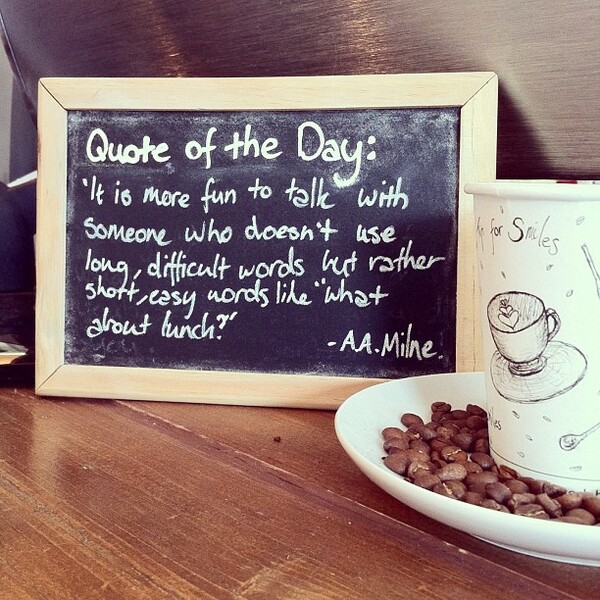 Quote of the Day:
"It is more fun to talk with
someone who doesn't use
long, difficult words but rather
short, easy words like "What
about lunch?"
-A.A.Milne.
for Smiles